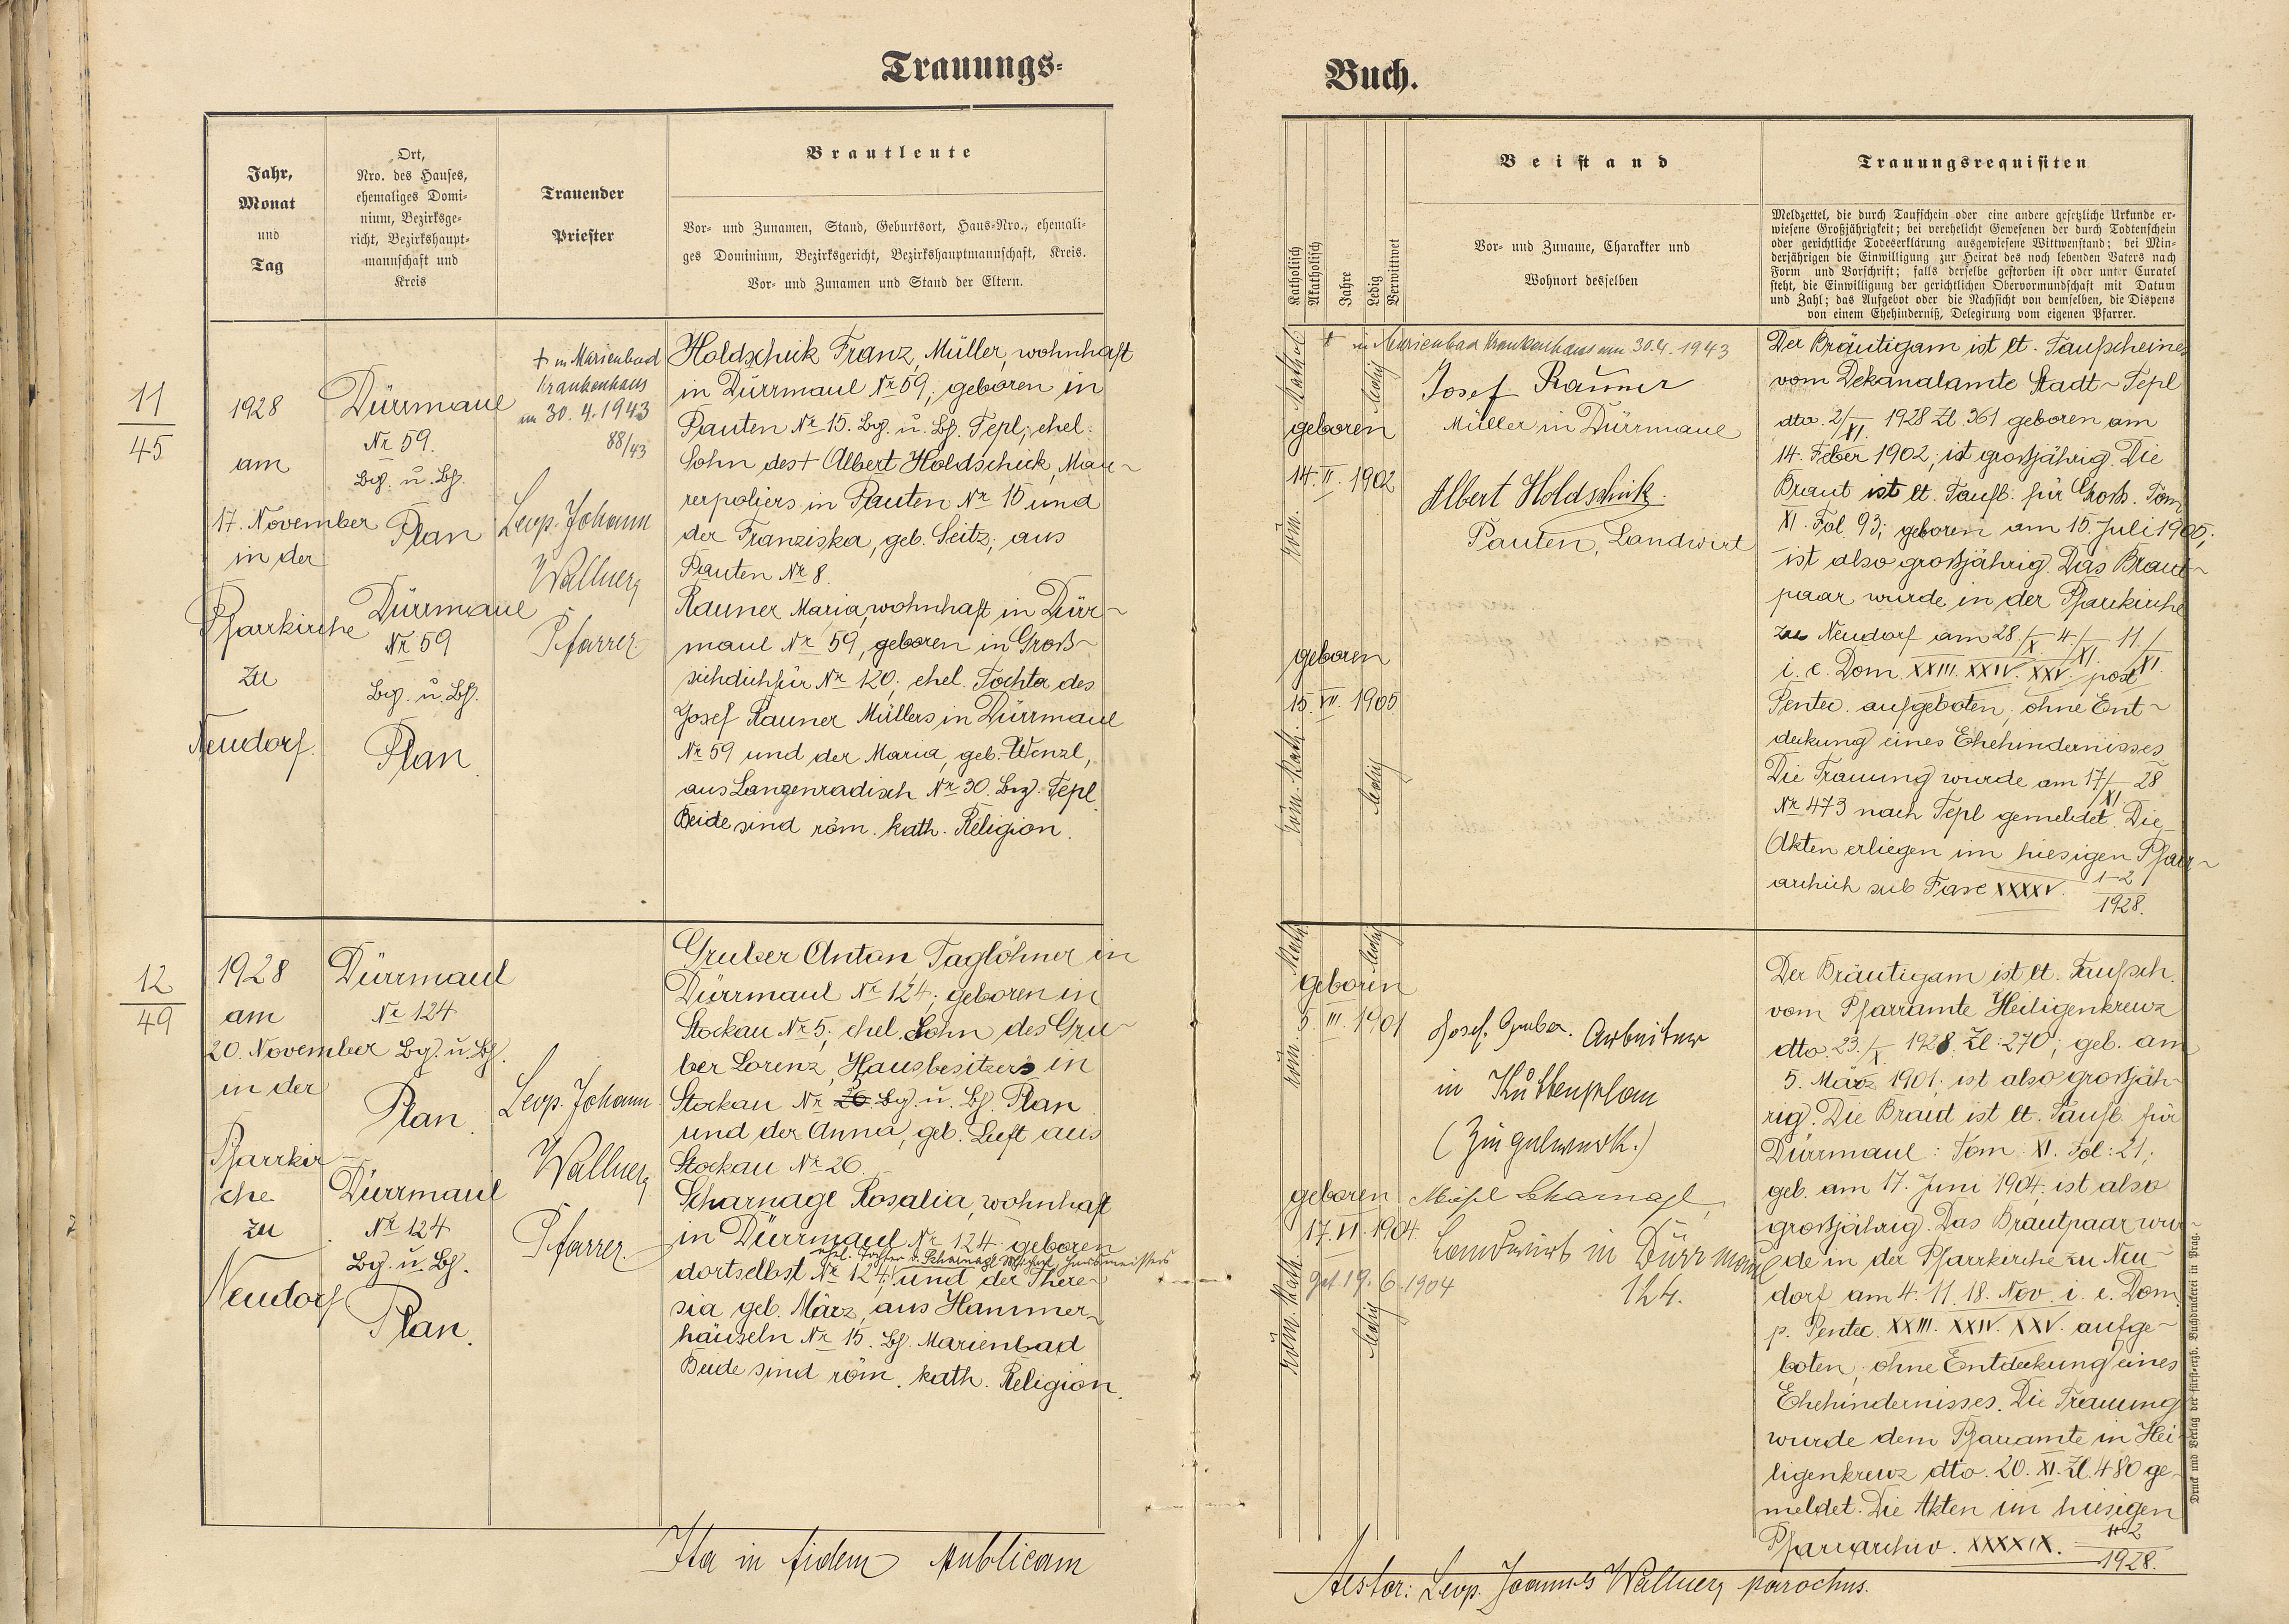 Trauungs-
Buch.
Jahr,
Monat
und
Tag
Ort,
Nro. des Hauses,
ehemaliges Domi-
nium, Bezirksge-
richt, Bezirkshaupt-
mannschaft und
Kreis
Trauender
Priester
Brautleute
Vor- und Zunamen, Stand, Geburtsort, Haus-Nro., ehemali-
ges Dominium, Bezirksgericht, Bezirkshauptmannschaft, Kreis.
Vor- und Zunamen und Stand der Eltern.
Katholisch
Akatholisch
Jahre
Ledig
Verwittwet
Beistand
Vor- und Zuname, Charakter und
Wohnort desselben
Trauungsrequisiten
Meldzettel, die durch Taufschein oder eine andere gesetzliche Urkunde er-
wiesene Großjährigkeit; bei verehelicht Gewesenen der durch Todtenschein
oder gerichtliche Todeserklärung ausgewiesene Wittwenstand; bei Min-
derjährigen die Einwilligung zur Heirat des noch lebenden Vaters nach
Form und Vorschrift; falls derselbe gestorben ist oder unter Curatel
steht, die Einwilligung der gerichtlichen Obervormundschaft mit Datum
und Zahl; das Aufgebot oder die Nachsicht von demselben, die Dispens
von einem Ehehinderniß, Delegirung vom eigenen Pfarrer.
11
45
1928
am
17. November
in der
Pfarrkirche
zu
Neudorf.
Dürrmaul
Nr 59.
Bzg. u. Bh.
Plan
Dürrmaul
Nr 59
Bzg. u. Bh.
Plan.
† in Marienbad
Krankenhaus
am 30. 4. 1943
88/43
Leop. Johann
Wallner
Pfarrer.
Holdschick Franz, Müller, wohnhaft
in Dürrmaul Nr 59; geboren in
Pauten Nr 15. Bzg. u. Bh. Tepl; ehel.
Sohn des † Albert Holdschick, Mau-
rerpoliers in Pauten Nr 15 und
der Franziska, geb. Seitz; aus
Pauten Nr 8.
Rauner Maria, wohnhaft in Dürr-
maul Nr 59, geboren in Groß-
sichdichfür Nr 120; ehel. Tochter des
Josef Rauner Müllers in Dürrmaul
Nr 59 und der Maria, geb. Wenzl,
aus Langenradisch Nr 30. Bzg. Tepl
Beide sind röm. kath. Religion.
† in Marienbad Krankenhaus am 30.4.1943
röm. Kathol.
ledig
geboren
14. II. 1902
geboren
15. VII. 1905
röm. Kath.
ledig
Josef Rauner
Müller in Dürrmaul
Albert Holdschick.
Pauten, Landwirt
Der Bräutigam ist lt. Taufscheines
vom Dekanalamte Stadt-Tepl
dto. 2/XI. 1928 Zl. 361 geboren am
14. Feber 1902; ist großjährig. Die
Braut ist lt. Taufb. für Großs. Tom
XI. Fol. 93; geboren am 15. Juli 1905;
ist also großjährig. Das Braut-
paar wurde in der Pfarrkirche
zu Neudorf am 28./X. 4./XI. 11./XI.
i. e. Dom. XXIII. XXIV. XXV. post
Pentec. aufgeboten, ohne Ent-
deckung eines Ehehindernisses
Die Trauung wurde am 17/XI 28
Nr 473 nach Tepl gemeldet. Die
Akten erliegen im hiesigen Pfarr-
archiv sub Fasc XXXXV. 1-2
1928.
12
49
1928
am
20. November
in der
Pfarrkir-
che
zu
Neudorf
Dürrmaul
Nr 124
Bzg. u. Bh.
Plan.
Dürrmaul
Nr 124
Bzg. u. Bh.
Plan.
Leop. Johann
Wallner
Pfarrer.
Gruber Anton Taglöhner in
Dürrmaul Nr 124; geboren in
Stockau Nr 5; ehel. Sohn des Gru-
ber Lorenz, Hausbesitzers in
Stockau Nr 26 Bzg. u. Bh. Plan
und der Anna, geb. Luft aus
Stockau Nr 26.
Scharnagl Rosalia, wohnhaft
in Dürrmaul Nr 124. geboren
ehel. Tochter d. Scharnagl Michael
dortselbst Nr 124; und der There-
sia geb. März, aus Hammer-
häuseln Nr 15. Bh. Marienbad
Beide sind röm. kath. Religion.
röm. Kath.
ledig
geboren
5. III. 1901
geboren
17. VI. 1904.
get 19. 6. 1904
Röm. Kath.
ledig
Josef Gruber. Arbeiter
in Kuttenplan
(Ziegelwerk.)
Michl Scharnagl,
Landwirt in Dürrmaul
124.
Der Bräutigam ist lt. Taufsch.
vom Pfarramte Heiligenkreuz
dto. 23./X 1928. Zl: 270; geb. am
5. März 1901; ist also großjäh-
rig. Die Braut ist lt. Taufb. für
Dürrmaul: Tom XI. Fol: 21;
geb. am 17. Juni 1904; ist also
großjährig. Das Brautpaar wur-
de in der Pfarrkirche zu Neu-
dorf am 4. 11. 18. Nov. i. e. Dom
p. Pentec. XXIII. XXIV. XXV. aufge-
boten, ohne Entdeckung eines
Ehehindernisses. Die Trauung
wurde dem Pfarramte in Hei-
ligenkreuz dto. 20. XI. Zl. 480 ge-
meldet. Die Akten im hiesigen
Pfarrarchiv. XXXXIX. 1-2
1928.
Ita in fidem publicam
Testor: Leop. Joannes Wallner, parochus.
Druck und Verlag der fürst-erzb. Buchdruckerei in Prag.